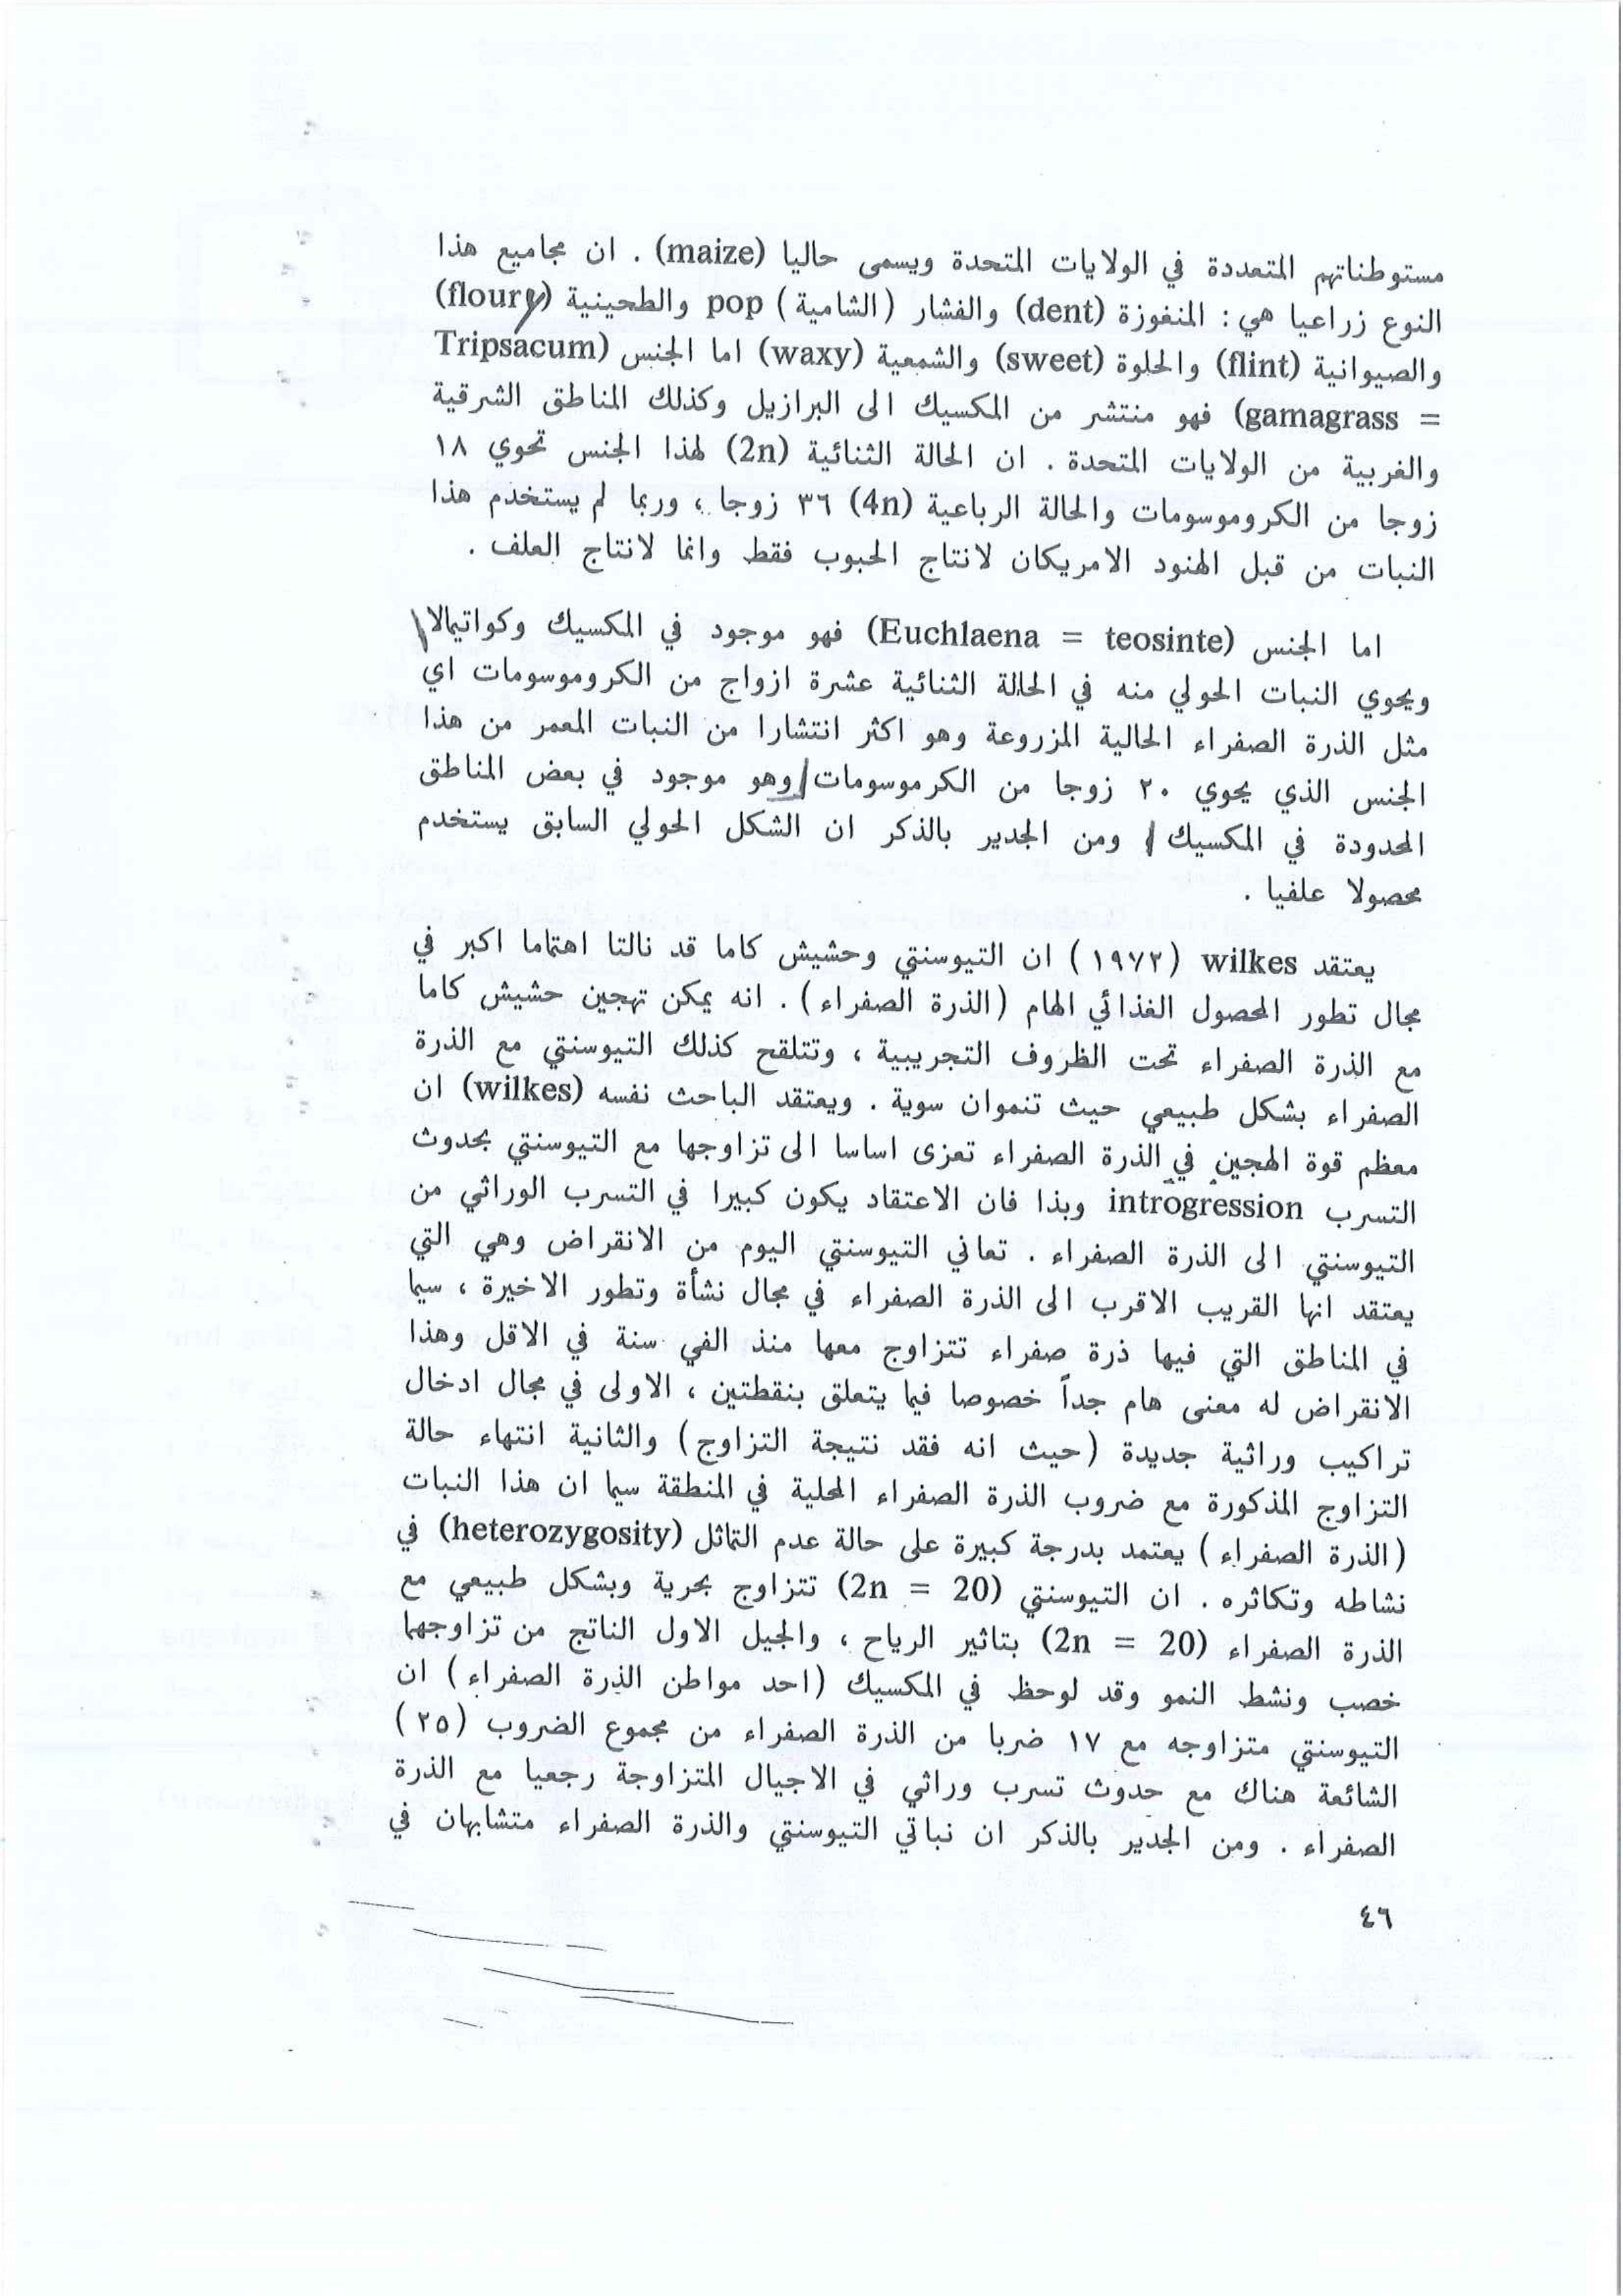 مستوطناتهم المتعددة في الولايات المتحدة ويسمى حاليا (maize) . ان مجاميع هذا
النوع زراعيا هي : المنغوزة (dent) والفشار (الشامية) pop والطحينية (floury)
والصيوانية (flint) والحلوة (sweet) والشمعية (waxy) اما الجنس (Tripsacum
= gamagrass) فهو منتشر من المكسيك الى البرازيل وكذلك المناطق الشرقية
والغربية من الولايات المتحدة . ان الحالة الثنائية (2n) لهذا الجنس تحوي ١٨
زوجا من الكروموسومات والحالة الرباعية (4n) ٣٦ زوجا ، وربما لم يستخدم هذا
النبات من قبل الهنود الامريكان لانتاج الحبوب فقط وانما لانتاج العلف .
اما الجنس (Euchlaena = teosinte) فهو موجود في المكسيك وكواتيمالا
ويحوي النبات الحولي منه في الحالة الثنائية عشرة ازواج من الكروموسومات اي
مثل الذرة الصفراء الحالية المزروعة وهو اكثر انتشارا من النبات المعمر من هذا
الجنس الذي يحوي ٢٠ زوجا من الكرموسومات وهو موجود في بعض المناطق
المحدودة في المكسيك ومن الجدير بالذكر ان الشكل الحولي السابق يستخدم
محصولا علفيا .
يعتقد wilkes (١٩٧٢) ان التيوسنتي وحشيش كاما قد نالتا اهتماما اكبر في
مجال تطور المحصول الغذائي الهام (الذرة الصفراء) . انه يمكن تهجين حشيش كاما
مع الذرة الصفراء تحت الظروف التجريبية ، وتتلقح كذلك التيوسنتي مع الذرة
الصفراء بشكل طبيعي حيث تنموان سوية . ويعتقد الباحث نفسه (wilkes) ان
معظم قوة الهجين في الذرة الصفراء تعزى اساسا الى تزاوجها مع التيوسنتي بحدوث
التسرب introgression وبذا فان الاعتقاد يكون كبيرا في التسرب الوراثي من
التيوسنتي الى الذرة الصفراء . تعاني التيوسنتي اليوم من الانقراض وهي التي
يعتقد انها القريب الاقرب الى الذرة الصفراء في مجال نشأة وتطور الاخيرة ، سيما
في المناطق التي فيها ذرة صفراء تتزاوج معها منذ الفي سنة في الاقل وهذا
الانقراض له معنى هام جداً خصوصا فيما يتعلق بنقطتين ، الاولى في مجال ادخال
تراكيب وراثية جديدة (حيث انه فقد نتيجة التزاوج) والثانية انتهاء حالة
التزاوج المذكورة مع ضروب الذرة الصفراء المحلية في المنطقة سيما ان هذا النبات
(الذرة الصفراء) يعتمد بدرجة كبيرة على حالة عدم التماثل (heterozygosity) في
نشاطه وتكاثره . ان التيوسنتي (2n = 20) تتزاوج بحرية وبشكل طبيعي مع
الذرة الصفراء (2n = 20) بتاثير الرياح ، والجيل الاول الناتج من تزاوجهما
خصب ونشط النمو وقد لوحظ في المكسيك (احد مواطن الذرة الصفراء) ان
التيوسنتي متزاوجه مع ١٧ ضربا من الذرة الصفراء من مجموع الضروب (٢٥)
الشائعة هناك مع حدوث تسرب وراثي في الاجيال المتزاوجة رجعيا مع الذرة
الصفراء . ومن الجدير بالذكر ان نباتي التيوسنتي والذرة الصفراء متشابهان في
٤٦